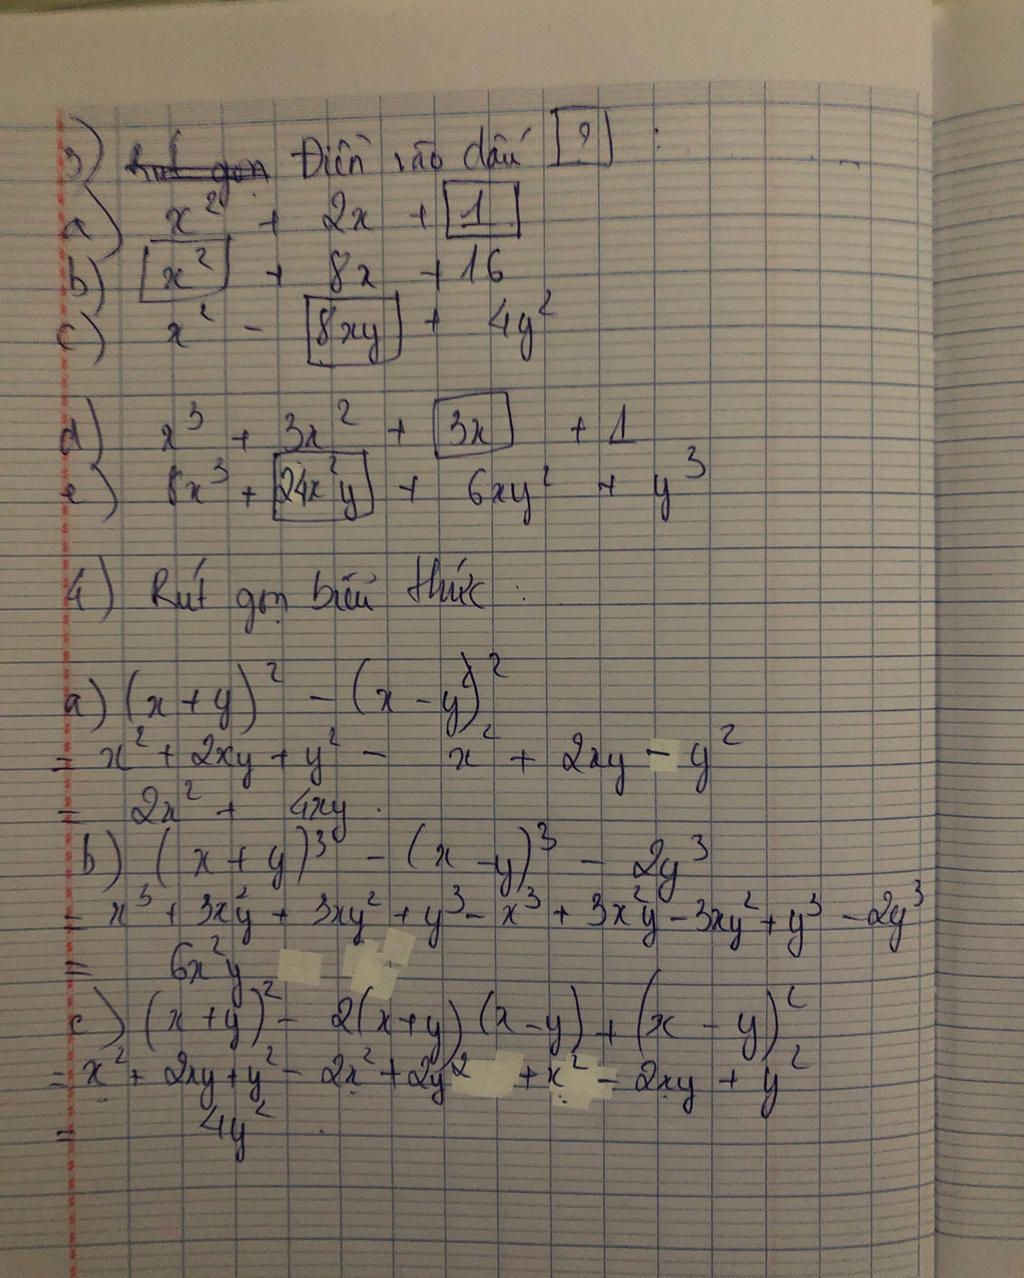 3) Điền vào dấu [?] :
a) x² + 2x + [1]
b) [x²] + 8x + 16
c) x² - [8xy] + 4y²
d) x³ + 3x² + [3x] + 1
e) 8x³ + [24x²y] + 6xy² + y³
4) Rút gọn biểu thức :
a) (x + y)² - (x - y)²
= x² + 2xy + y² - x² + 2xy - y²
= 2x² + 4xy .
b) (x + y)³ - (x - y)³ - 2y³
= x³ + 3x²y + 3xy² + y³ - x³ + 3x²y - 3xy² + y³ - 2y³
= 6x²y
c) (x + y)² - 2(x + y)(x - y) + (x - y)²
= x² + 2xy + y² - 2x² + 2y² + x² - 2xy + y²
= 4y² .